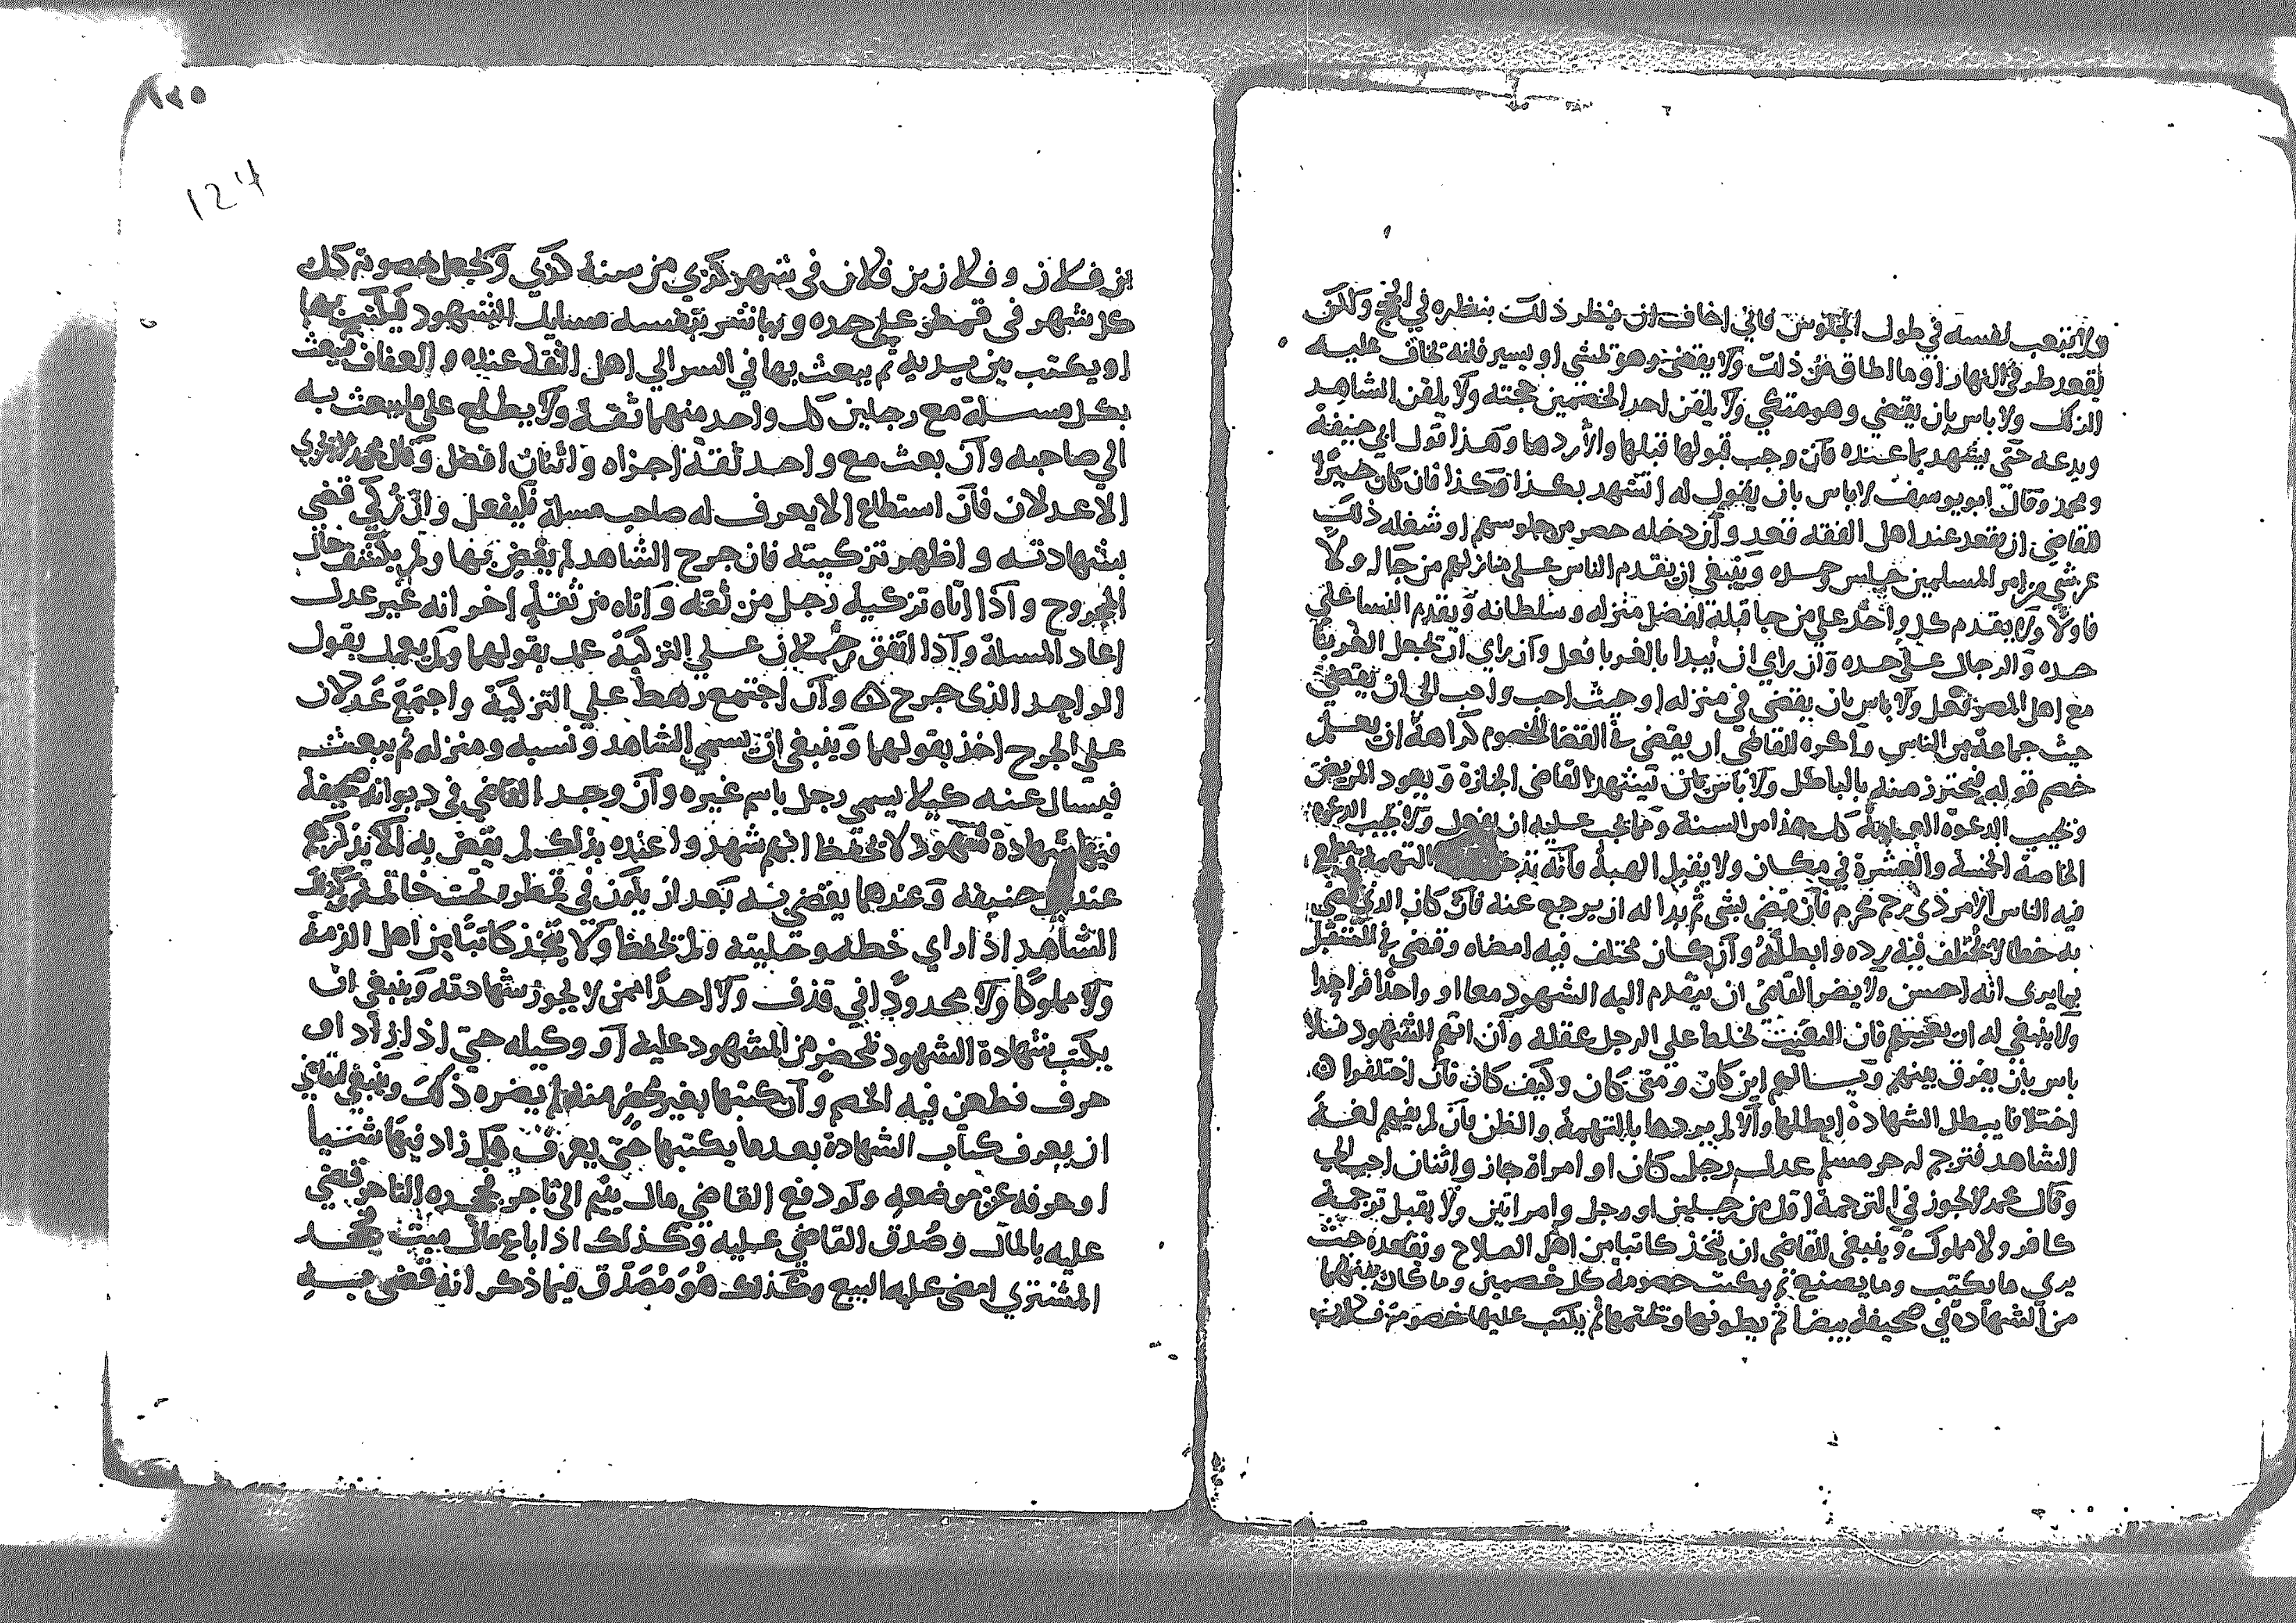 ولا يتعب نفسه في طول الجلوس فاني اخاف ان يظر ذلك بنظره في الحجج ولكن
يقعد طرفي النهار او ما اطاق من ذلك ولا يقضي وهو يمشي او يسير فانه يخاف عليه
الزلل ولا باس بان يقضي وهو متكي ولا يلقن احد الخصمين حجته ولا يلقن الشاهد
ويدعه حتى يشهد بما عنده فان وجب قبولها قبلها والا ردها وهذا قول ابي حنيفة
ومحمد وقال ابو يوسف لا باس بان يقول له اتشهد بكذا وكذا فان كان خيرا
للقاضي ان يقعد عند اهل الفقه قعد وان دخله حصر من جلوسهم او شغله ذلك
عن شي من امر المسلمين جلس وحده وينبغي ان يقدم الناس على منازلهم من جا اولا
فاولا ولا يقدم كل واحد على من جا قبله لفضل منزله وسلطانه ويقدم النسا على
حده والرجال على حده وان راي ان يبدا بالغربا فعل وان راي ان يجعل الغربا
مع اهل المصر فعل ولا باس بان يقضي في منزله او حيث احب واحب الي ان يقضي
حيث جماعة من الناس واكره للقاضي ان يفتي في القضا للخصوم كراهة ان يعلم
خصم قوله فيحترز منه بالباطل ولا باس بان يشهد القاضي الجنازة ويعود المريض
ويجيب الدعوة العامة كل هذا من السنة ومما يجب عليه ان يفعل ولا يجيب الدعوة
الخاصة الخمسة والعشرة في مكان ولا يقبل الهبة فانه التهمة ويطمع
فيه الناس الا من ذي رحم محرم فان قضى بشي ثم بدا له ان يرجع عنه فان كان الذي قضى
به خطا لا يختلف فيه رده وابطله وان كان مختلف فيه امضاه وقضى في المستقبل
بما يرى انه احسن ولا يضر القاضي ان يتقدم اليه الشهود معا او واحدا فواحدا
ولا ينبغي له ان يعنتهم فان التعنيت يخلط على الرجل عقله وان اتهم الشهود فلا
باس بان يفرق بينهم ويسالهم اين كان ومتى كان وكيف كان فان اختلفوا
اختلافا يبطل الشهادة ابطلها والا لم يردها بالتهمة والظن فان لم يفهم لغة
الشاهد فترجم له حر مسلم عدل رجل كان او امراة جاز واثنان احب الي
وقال محمد لا يجوز في الترجمة اقل من رجلين او رجل وامراتين ولا يقبل ترجمة
كافر ولا مملوك وينبغي للقاضي ان يتخذ كاتبا من اهل الصلاح ويقعده حيث
يرى ما يكتب وما يصنع ثم يكتب خصومة كل خصمين وما كان بينهما
من الشهادة في صحيفة بيضا ثم يطويها ويختمها ثم يكتب عليها خصومة فلان
١٢٥
124
بن فلان وفلان بن فلان في شهر كذي من سنة كذي ويجعل خصومة كل
كل شهر في قمطر على حده ويباشر بنفسه مسايل الشهود فيكتب بها
او يكتب بين يديه ثم يبعث بها في السر الي اهل الثقة عنده والعفاف فيبعث
بكل مسلة مع رجلين كل واحد منهما ثقة ولا يطلع على ما يبعث به
الي صاحبه وان بعث مع واحد ثقة اجزاه واثنان افضل وقال محمد لا يجزي
الا عدلان فان استطاع الا يعرف له صاحب مسلة فليفعل وان زكي قضى
بشهادته واظهر تزكيته فان جرح الشاهد لم يقض بها ولم يكشف عن
المجروح واذا اتاه تزكية رجل من ثقه واتاه من ثقة اخر انه غير عدل
اعاد المسلة واذا اتفق رجلان على التزكية عمل بقولهما ولم يعمل بقول
الواحد الذي جرح وان اجتمع رهط على التزكية واجتمع عدلان
على الجرح اخذ بقولهما وينبغي ان يسمى الشاهد ونسبه ومنزله ثم يبعث
فيسال عنه كيلا يسمى رجل باسم غيره وان وجد القاضي في ديوانه صحيفة
فيها شهادة شهود لا يحفظ انهم شهدوا عنده بذلك لم يقض به الا ان يذكرهم
عند ابي حنيفه وعندهما يقضي به بعد ان يكون في قمطره تحت خاتمه وكذلك
الشاهد اذا راي خطه وحليته ولم يحفظ ولا يتخذ كاتبا من اهل الذمة
ولا مملوكا ولا محدودا في قذف ولا احدا ممن لا يجوز شهادته وينبغي ان
يكتب شهادة الشهود بمحضر من المشهود عليه او وكيله حتى اذا زاد او
حرف فطعن فيه الخصم وان كتبها بغير محضر منه لم يضره ذلك وينبغي للقاضي
ان يعرف كتاب الشهادة بعد ما يكتبها حتى يعرف هل زاد فيها شييا
او حرفه عن موضعه ولو دفع القاضي مال يتيم الى تاجر فجحده التاجر قضى
عليه بالمال وصدق القاضي عليه وكذلك اذا باع مال ميت فجحد
المشتري امضى عليه البيع وكذلك هو مصدق فيما ذكر انه قضى به